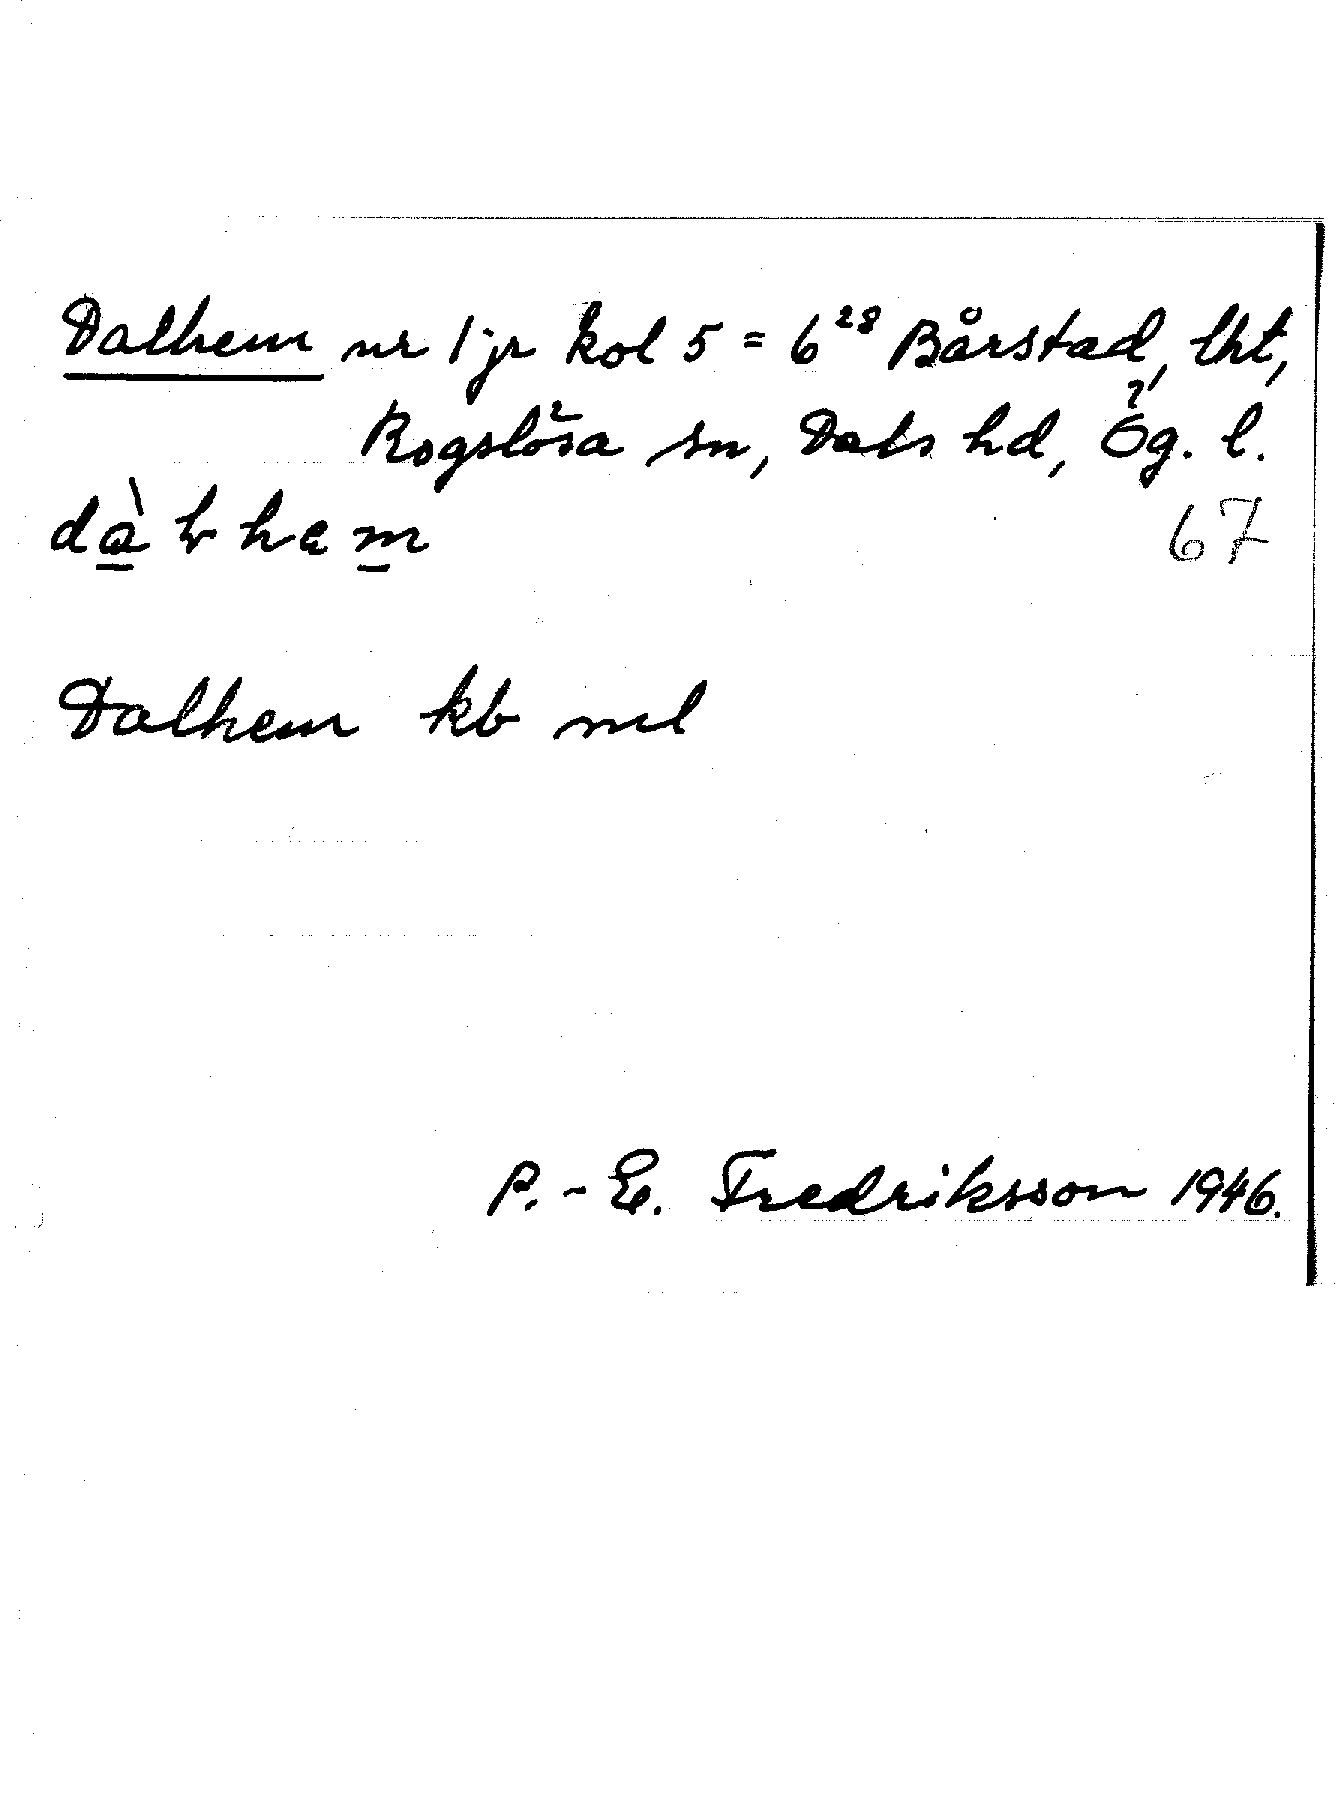 Dalhem nr 1 jr kol 5 = 6²⁸ Bårstad, lht,
Rogslösa sn, Dals hd, Ög. l.
67
Dalhem kb ml
P.-E. Fredriksson 1946.